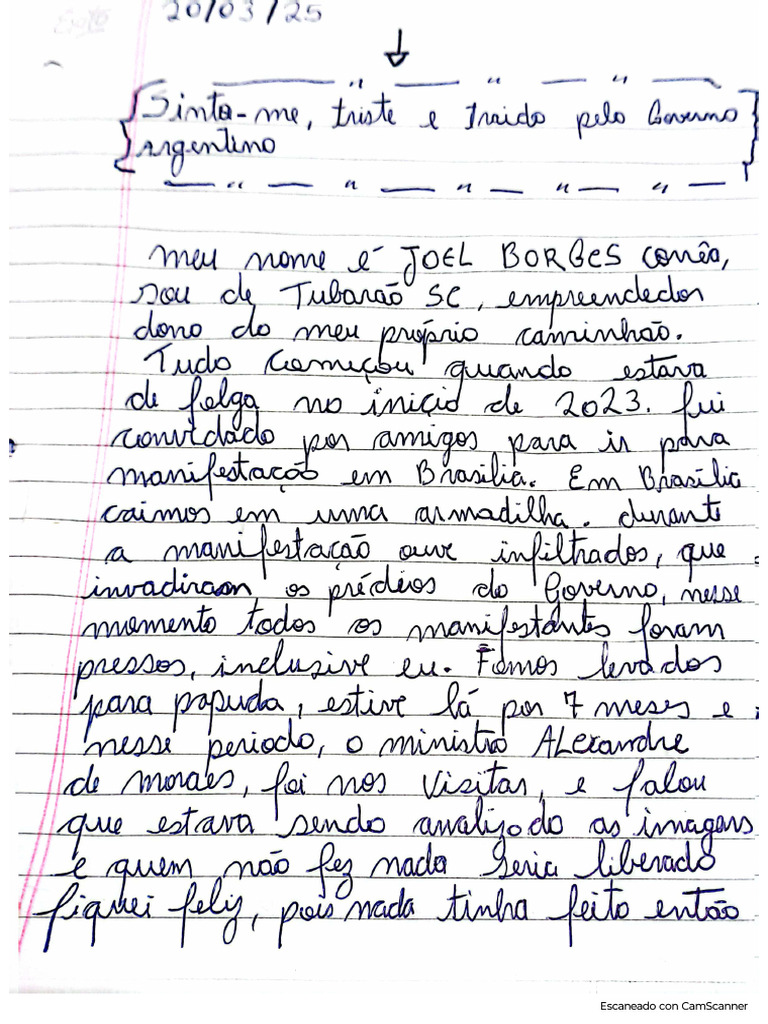 20/03/25
Sinto-me, triste e traido pelo Governo
Argentino
meu nome é JOEL BORGES Corrêa,
sou de Tubarão SC, empreendedor
dono do meu próprio caminhão.
Tudo começou quando estava
de folga no inicio de 2023. fui
convidado por amigos para ir para
manifestação em Brasília. Em Brasília
caimos em uma armadilha. durante
a manifestação ouve infiltrados, que
invadiram os prédios do Governo, nesse
momento todos os manifestantes foram
pressos, inclusive eu. Fomos levados
para papuda, estive lá por 7 meses e
nesse periodo, o ministro ALexandre
de moraes, foi nos visitar, e falou
que estava sendo analizado as imagens
e quem não fez nada seria liberado
fiquei feliz, pois nada tinha feito então
Escaneado con CamScanner